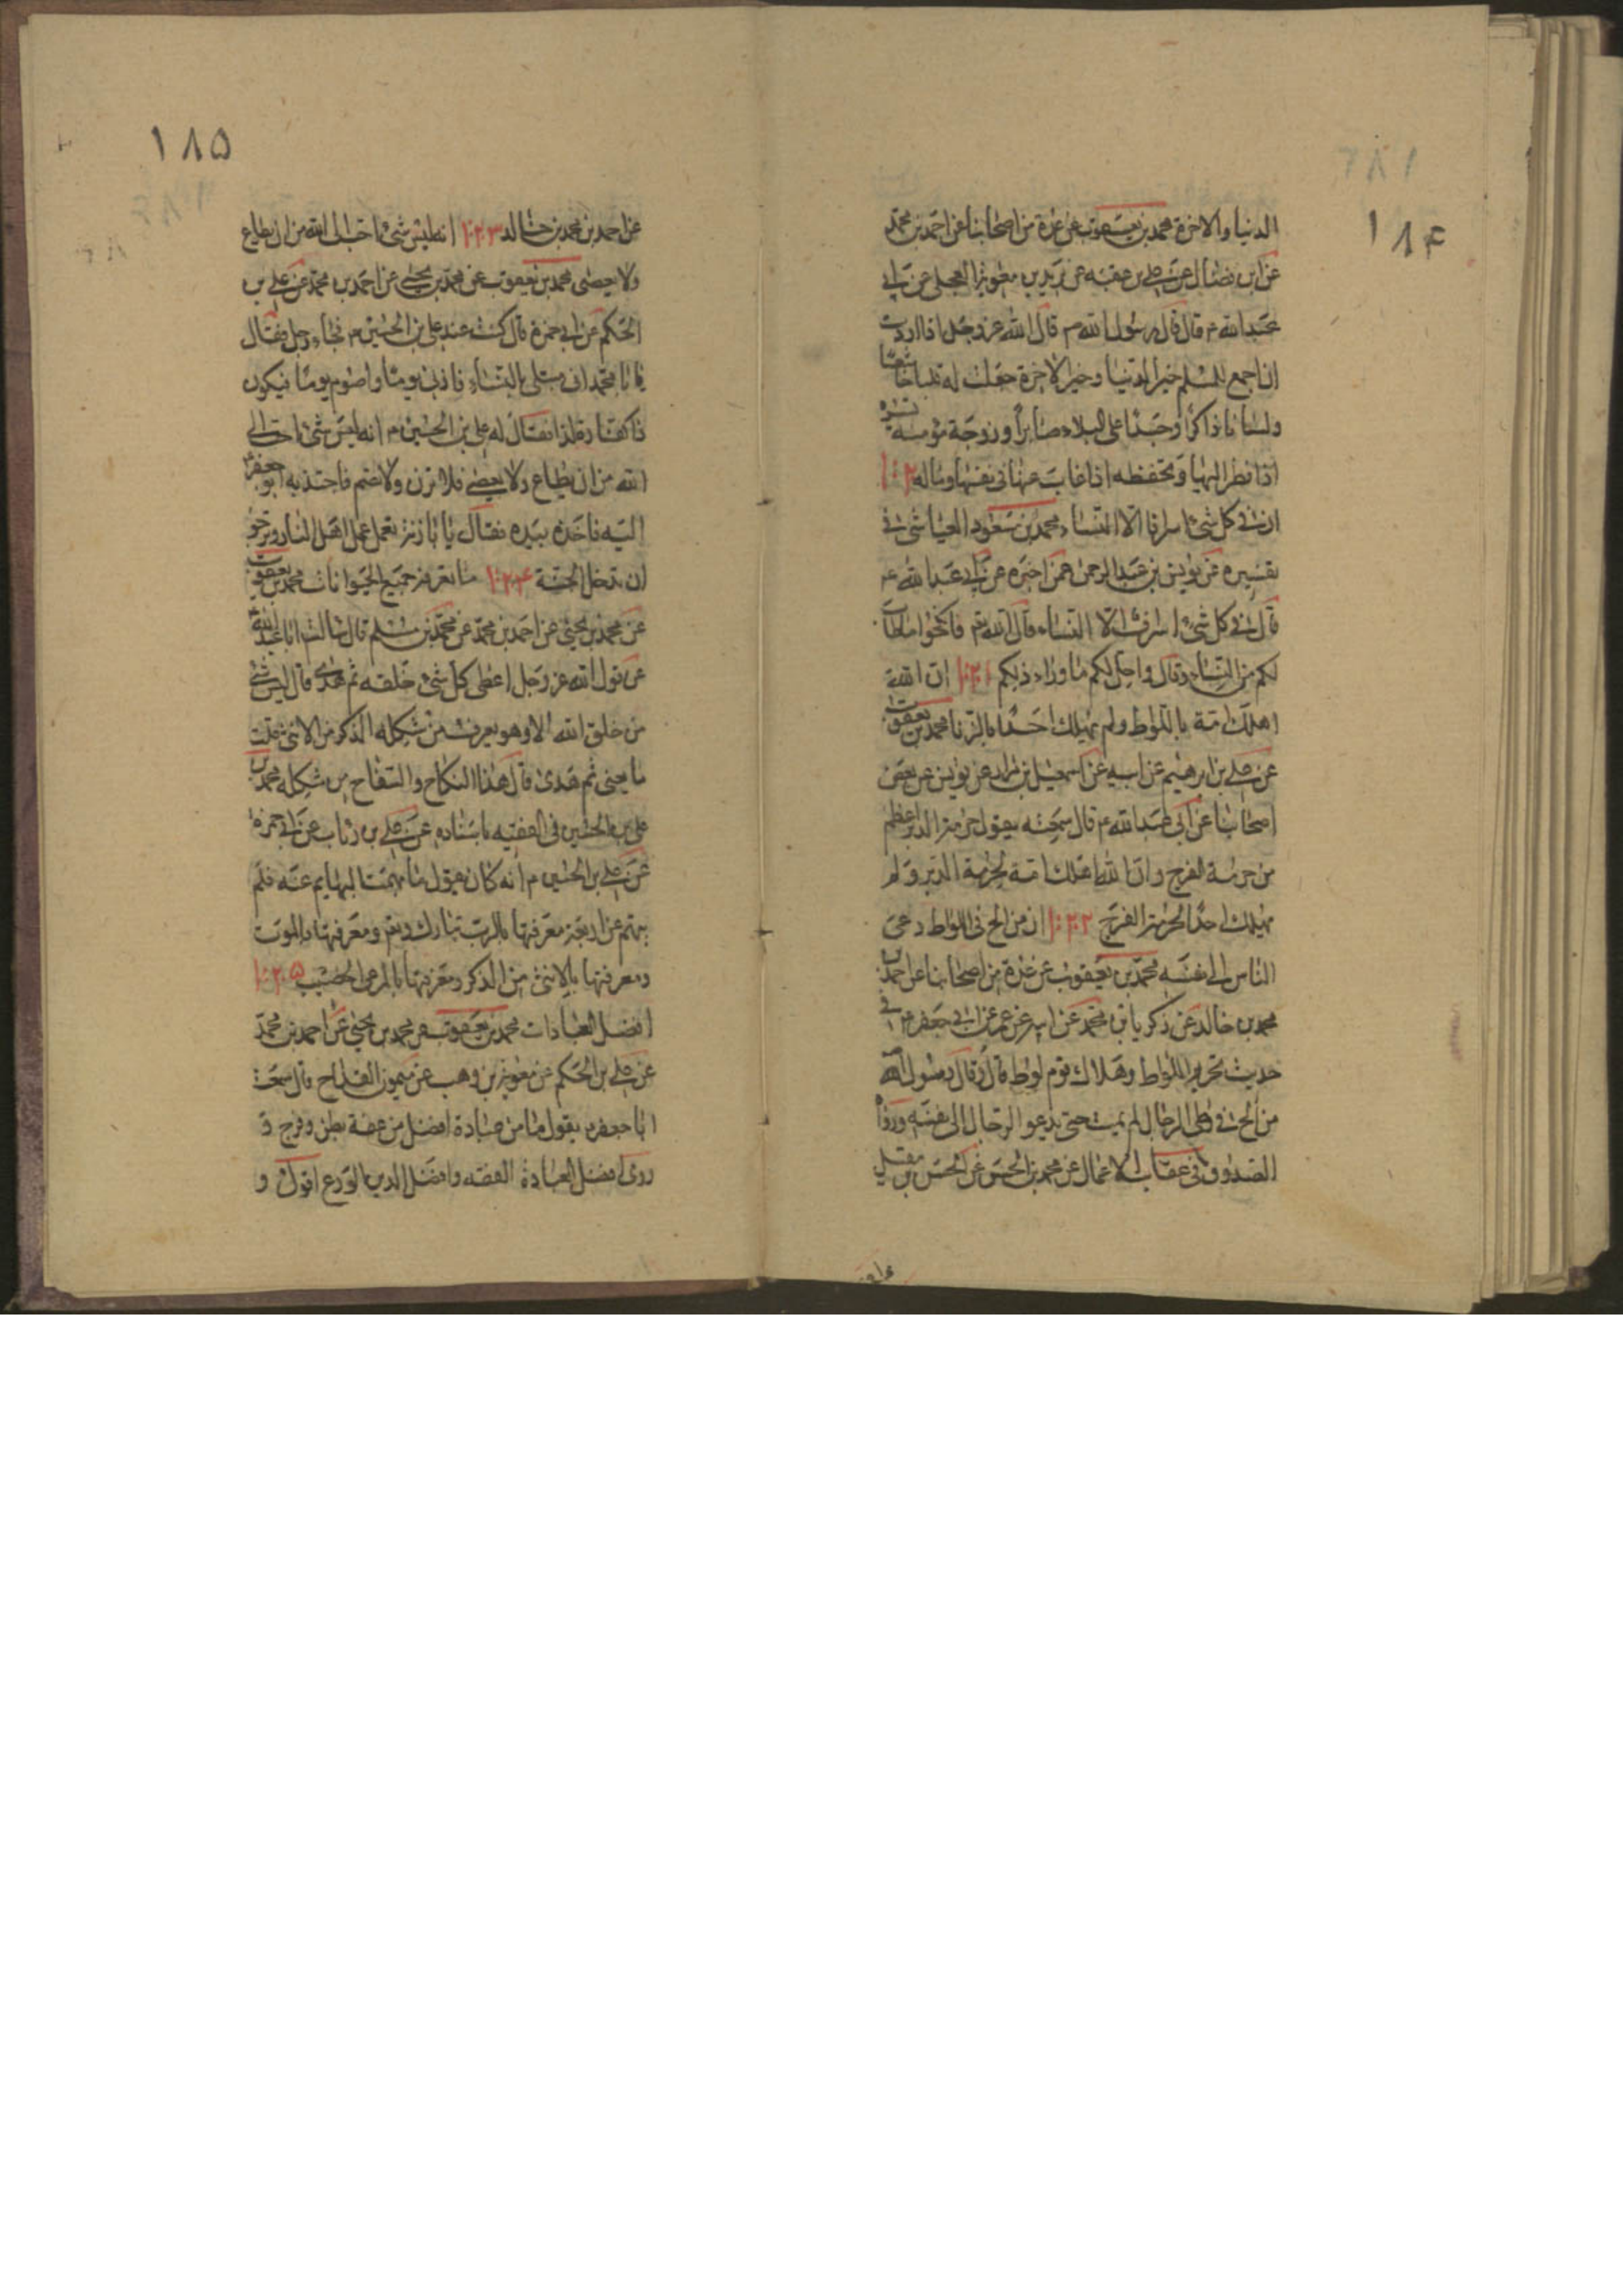 ١٨۴
الدنيا والاخرة محمد بن يعقوب عن عدة من اصحابنا عن احمد بن محمد
عن ابن فضال عن على بن عقبه عن بريد بن معوية العجلى عن ابى
عبد الله ع قال قال رسول الله ص قال الله عز وجل اذا اردت
ان اجمع للمسلم خير الدنيا وخير الاخرة جعلت له قلبا خاشعا
ولسانا ذاكرا وجسدا على البلاء صابرا وزوجة مؤمنه تسره
اذا نظر اليها وتحفظه اذا غاب عنها فى نفسها وماله
ان فى كل شئ اسرافا الا النساء محمد بن مسعود العياشى فى
تفسيره عن يونس بن عبد الرحمن عمن اخبره عن ابى عبد الله ع
قال فى كل شئ اسراف الا النساء قال الله تع فانكحوا ما طاب
لكم من النساء وقال واحل لكم ما وراء ذلكم ١٠٢١ ان الله
اهلك امة باللواط ولم يهلك احدا بالزنا محمد بن يعقوب
عن على بن ابرهيم عن ابيه عن اسمعيل بن مرار عن يونس عن بعض
اصحابنا عن ابى عبد الله ع قال سمعته يقول حرمة الدبر اعظم
من حرمة الفرج وان الله اهلك امة بحرمة الدبر ولم
يهلك احدا لحرمة الفرج ١٠٢٢ ان من الح فى اللواط دعى
الناس الى نفسه محمد بن يعقوب عن عدة من اصحابنا عن احمد بن
محمد بن خالد عن زكريا بن محمد عن ابيه عن عمرو عن ابى جعفر ع فى
حديث تحريم اللواط وهلاك قوم لوط قال وقال رسول الله
من الح فى وطى الرجال لم يمت حتى يدعو الرجال الى نفسه ورواه
الصدوق فى عقاب الاعمال عن محمد بن الحسن عن الحسن بن متيل
١٨۵
عن احمد بن محمد بن خالد ١٠٢٣ انه ليس شئ احب الى الله من ان يطاع
ولا يعصى محمد بن يعقوب عن محمد بن يحيى عن احمد بن محمد عن على بن
الحكم عن ابى حمزة قال كنت عند على بن الحسين ع فجاء رجل فقال
يا ابا محمد انى مبتلى بالنساء فازنى يوما واصوم يوما فيكون
ذا كفارة لذا فقال له على بن الحسين ع انه ليس شئ احب الى
الله من ان يطاع ولا يعصى فلا تزن ولا تصم فاجتذبه ابو جعفر ع
اليه فاخذه بيده فقال يا ابا زنة تعمل عمل اهل النار وترجو
ان تدخل الجنة ١٠٢۴ ما تعرفه جميع الحيوانات محمد بن يعقوب
عن محمد بن يحيى عن احمد بن محمد عن محمد بن مسلم قال سالت ابا عبد الله ع
عن قول الله عز وجل اعطى كل شئ خلقه ثم هدى قال ليس شئ
من خلق الله الا وهو يعرف من شكله الذكر من الانثى قلت
ما يعنى ثم هدى قال هذا النكاح والسفاح من شكله محمد بن
على بن الحسين فى الفقيه باسناده عن على بن رئاب عن ابى حمزة
عن على بن الحسين ع انه كان يقول ما بهمت البهايم عنه فلم
تبهم عن اربعة معرفتها بالرب تبارك وتع ومعرفتها بالموت
ومعرفتها بالانثى من الذكر ومعرفتها بالمرعى الخصيب ١٠٢۵
افضل العبادات محمد بن يعقوب عن محمد بن يحيى عن احمد بن محمد
عن على بن الحكم عن معوية بن وهب عن ميمون القداح قال سمعت
ابا جعفر ع يقول ما من عبادة افضل من عفة بطن وفرج و
روى افضل العبادة الفقه وافضل الدين الورع اقول و